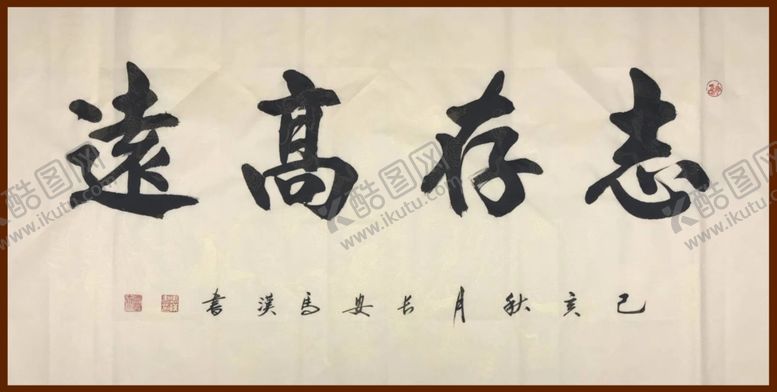 志存高遠
己亥秋月长安马汉書
酷图网
www.ikutu.com
酷图网
www.ikutu.com
酷图网
www.ikutu.com